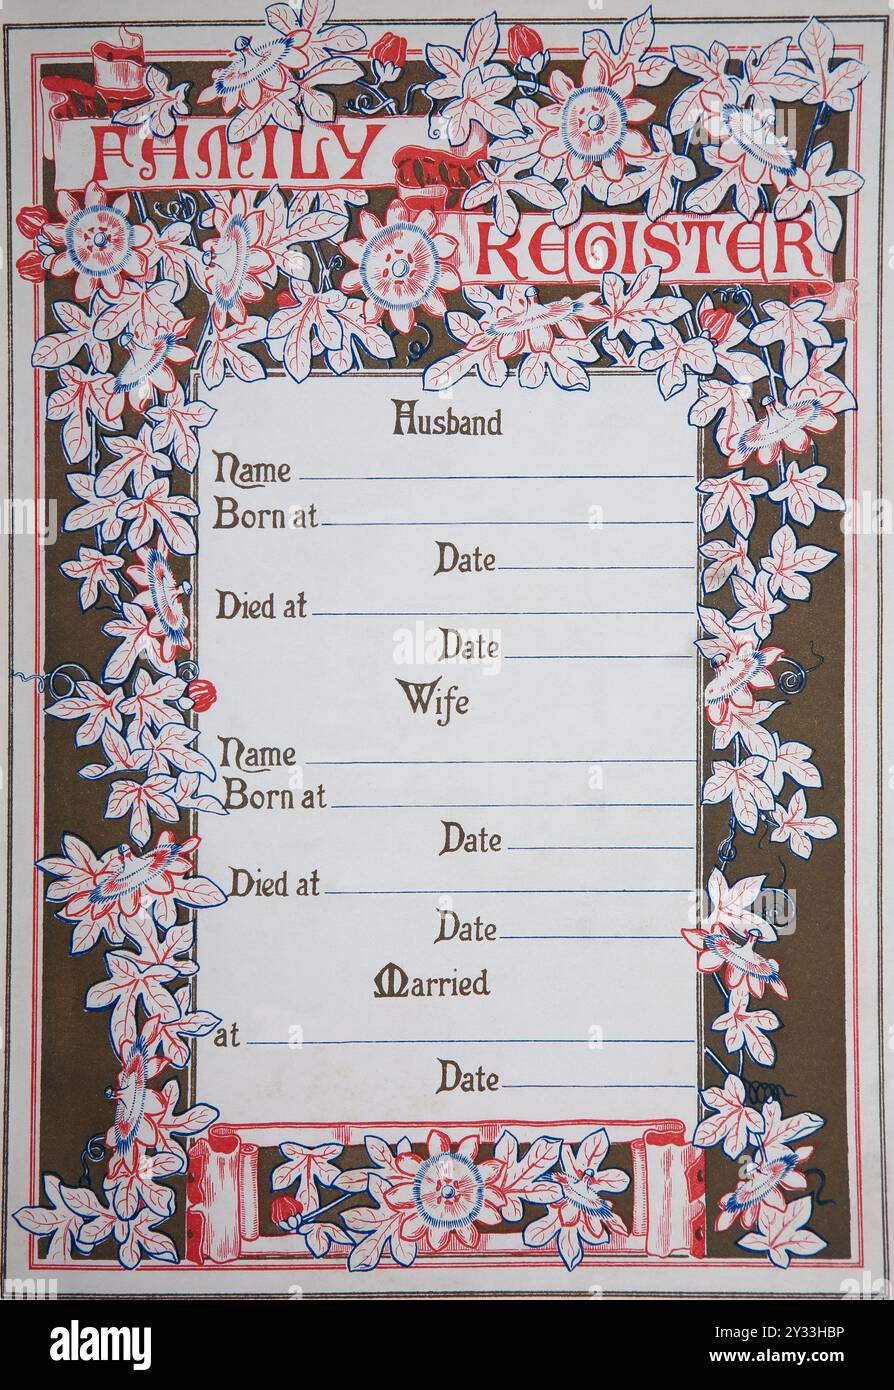 FAMILY
REGISTER
Husband
Name
Born at
Date
Died at
Date
Wife
Name
Born at
Date
Died at
Date
Married
at
Date
alamy
Image ID: 2Y33HBP
www.alamy.com